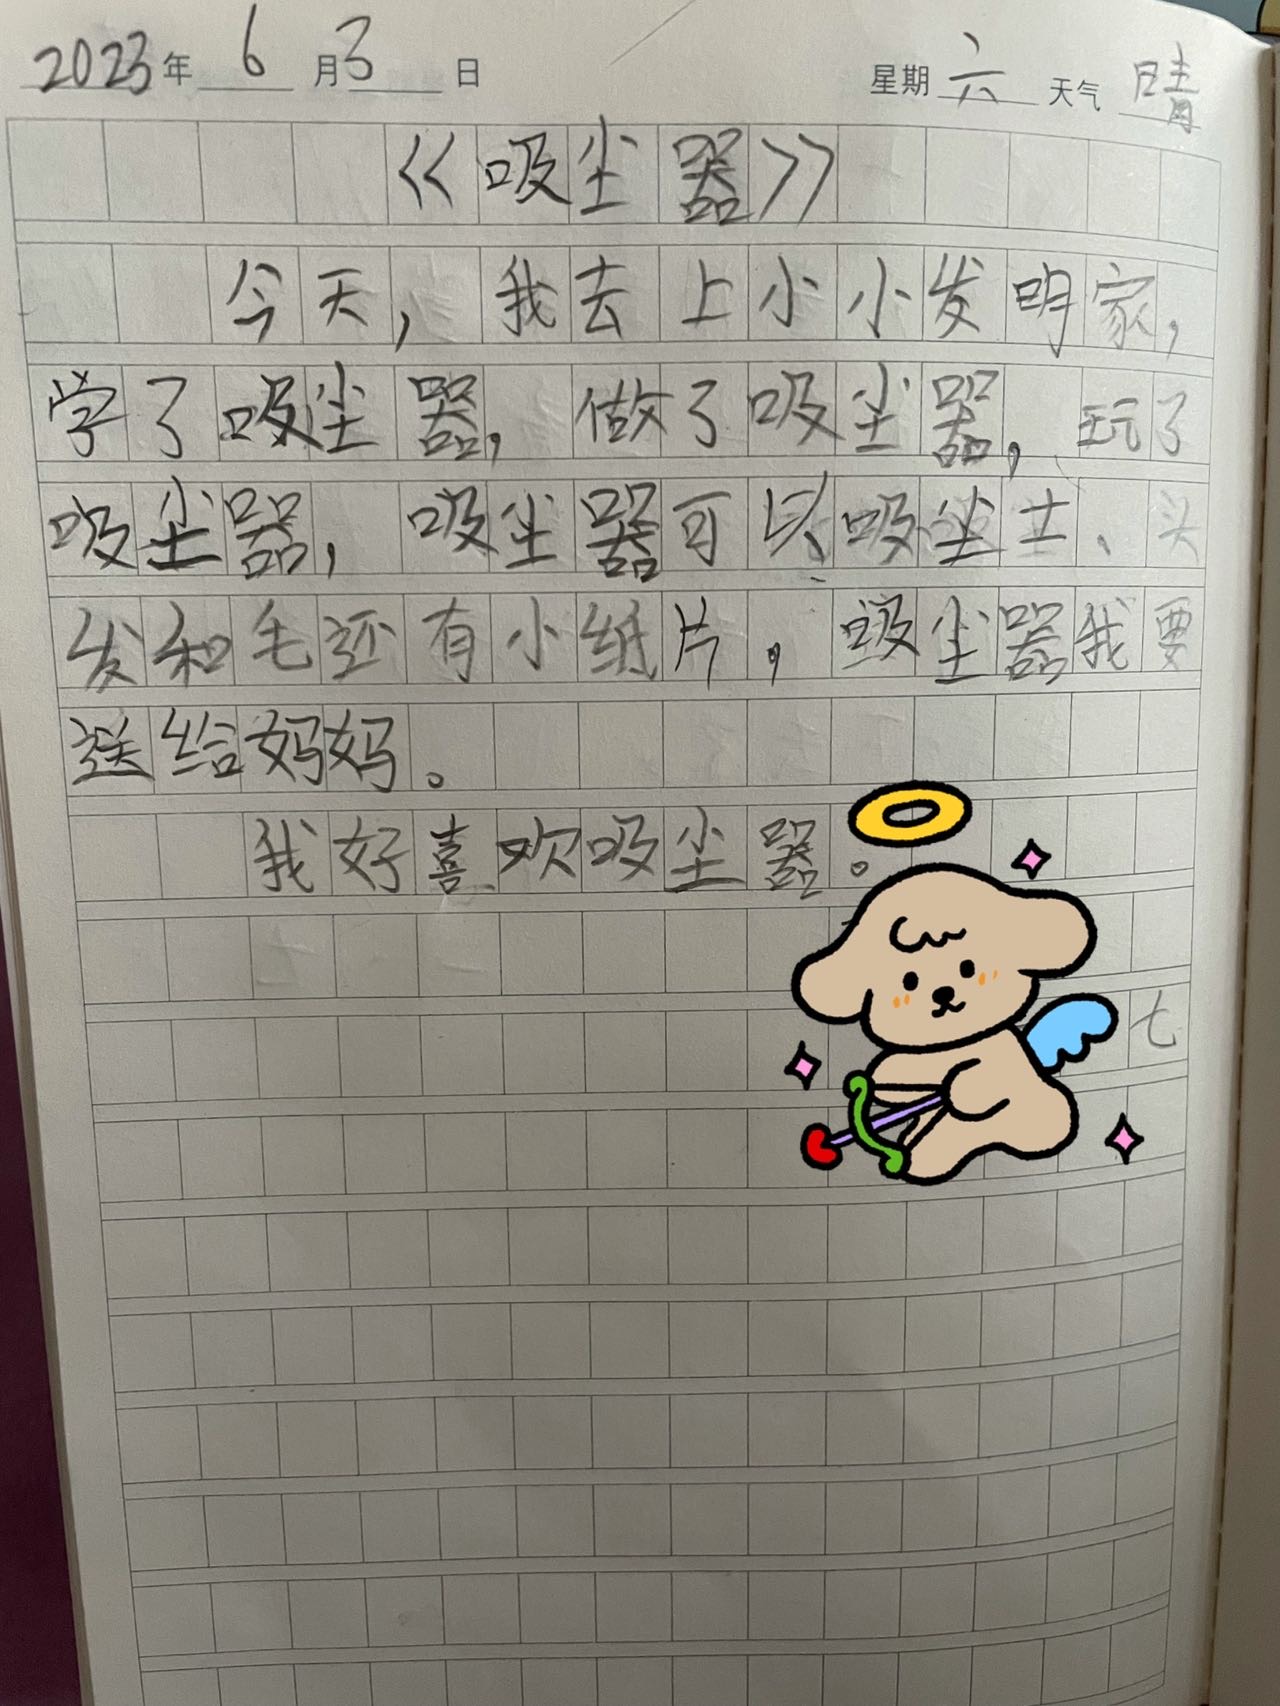 2023年 6 月 3 日 星期 六 天气 晴
《吸尘器》
今天，我去上小小发明家，
学了吸尘器，做了吸尘器，玩了
吸尘器，吸尘器可以吸尘土、头
发和毛还有小纸片，吸尘器我要
送给妈妈。
我好喜欢吸尘器。
七